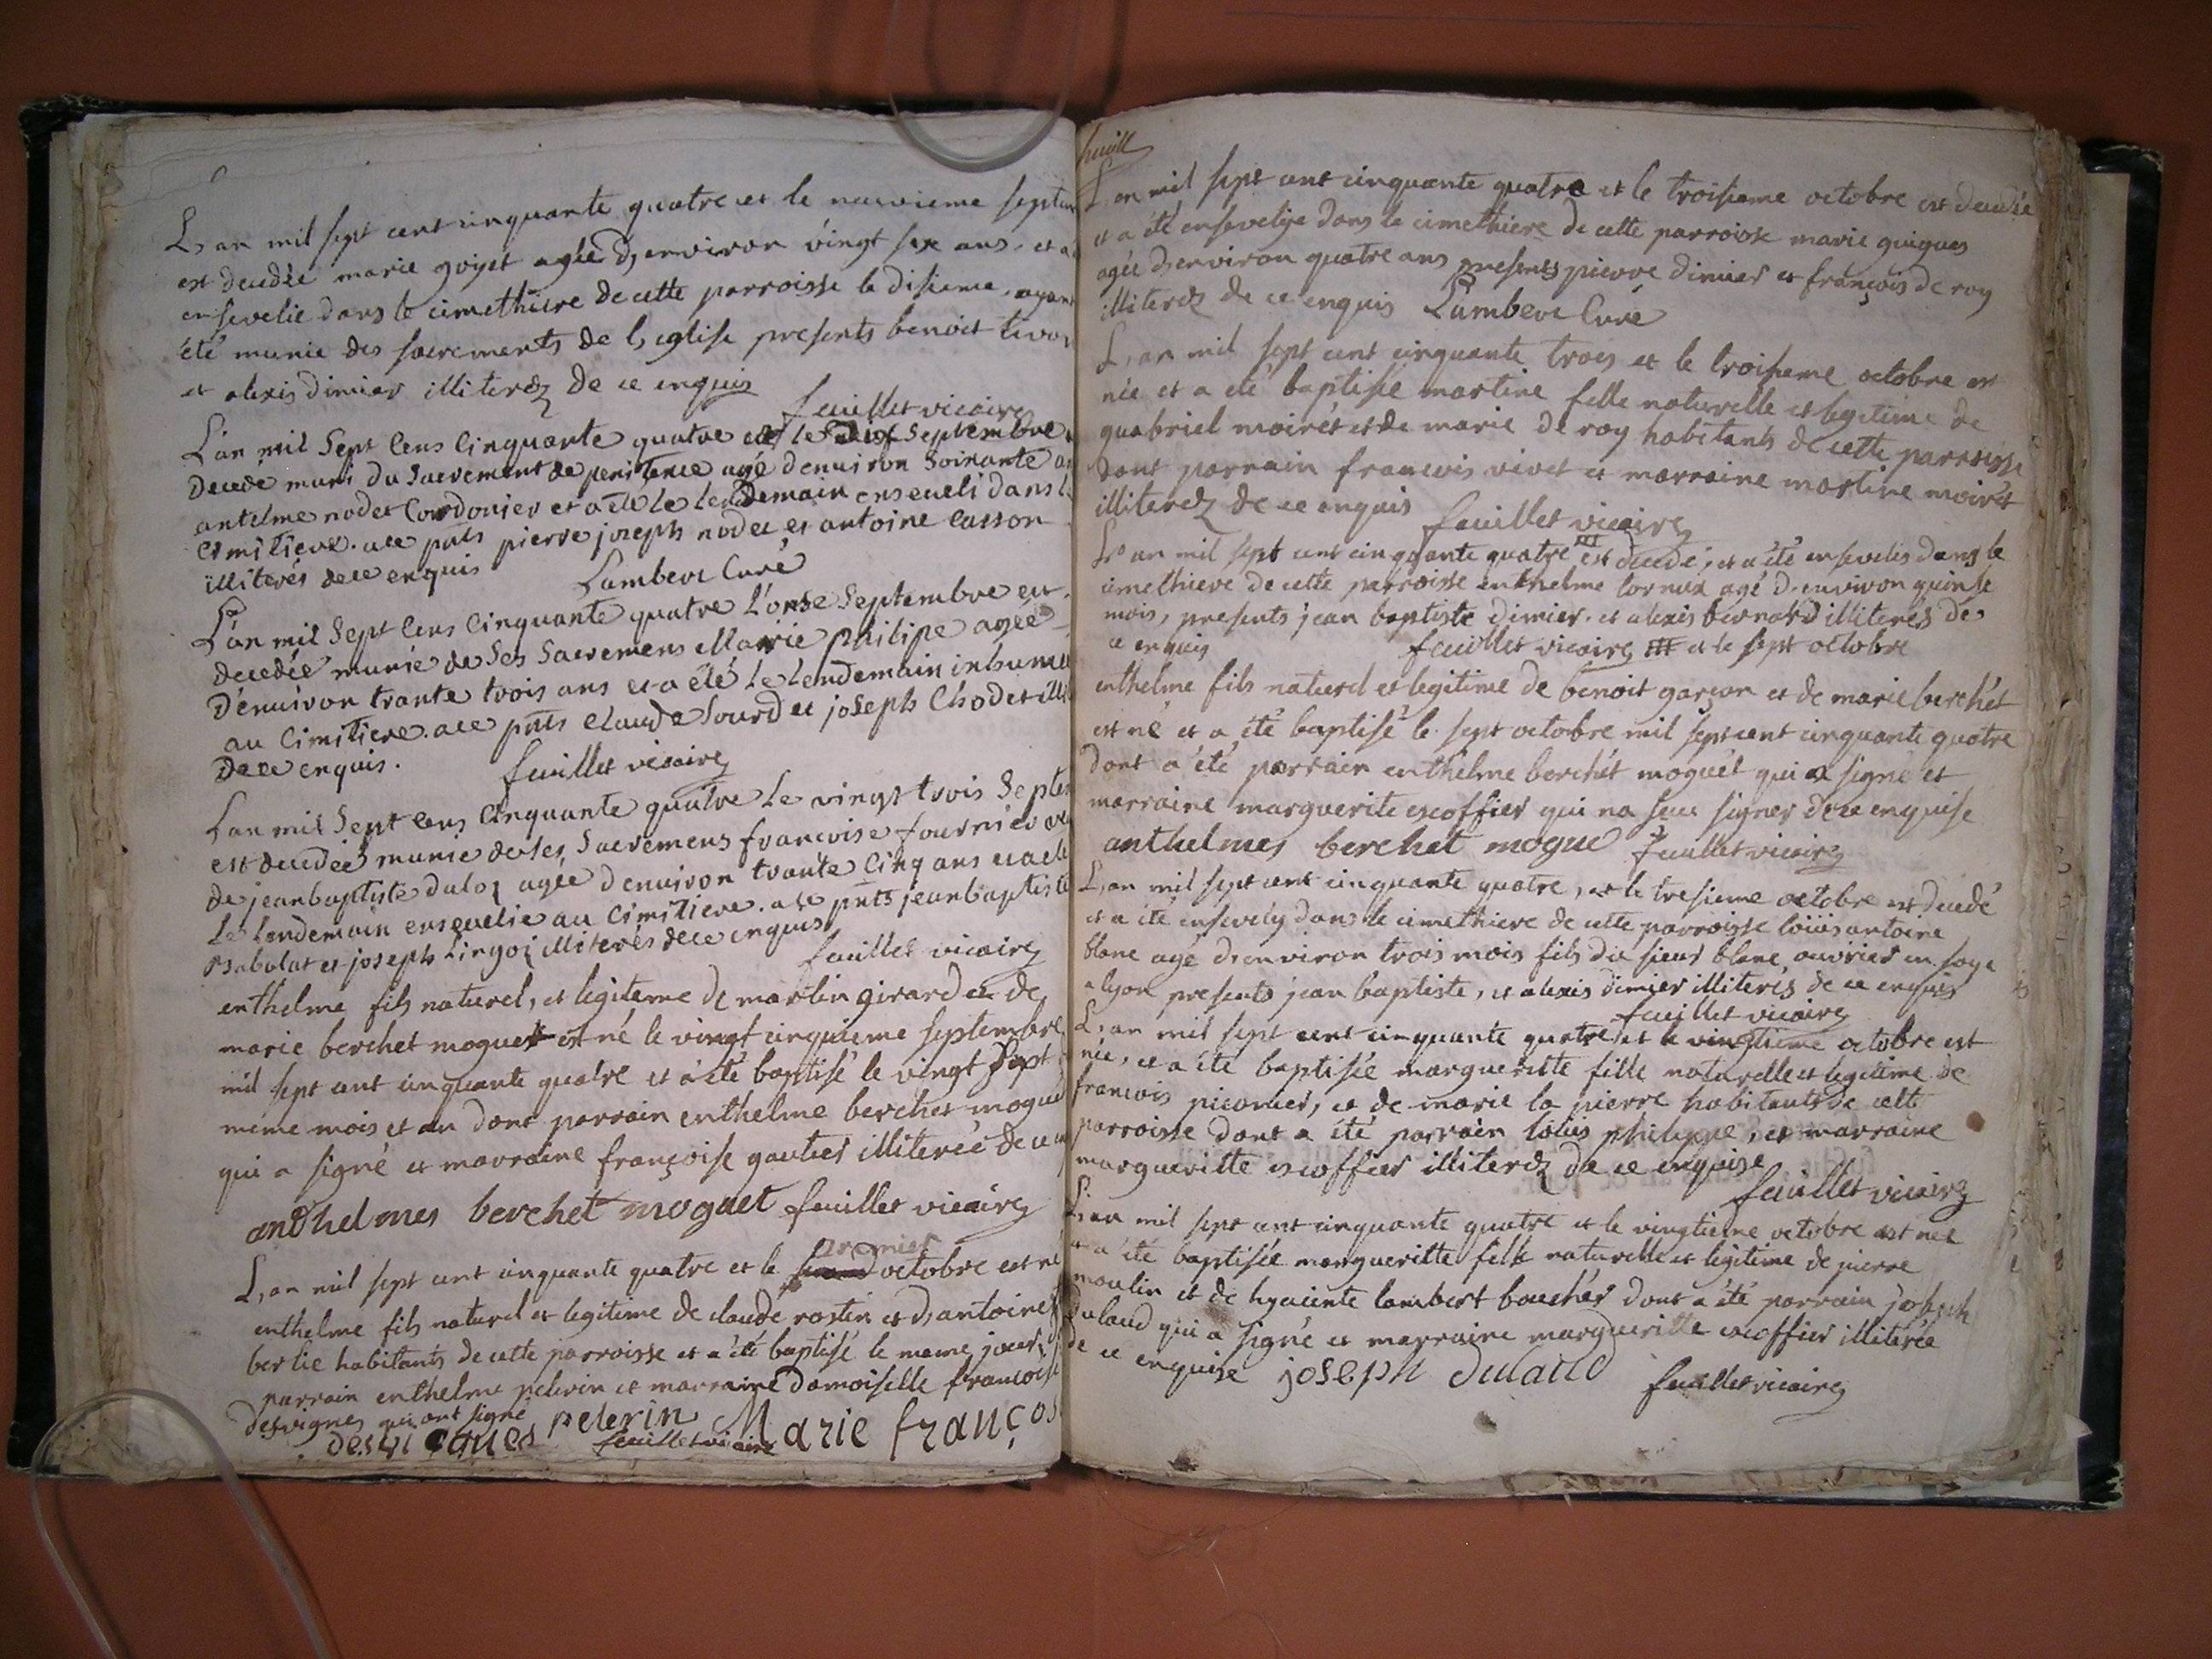 L'an mil sept cent cinquante quatre et le neuvieme septem
est decedée marie goiget agée d'environ vingt six ans, et a
ensevelie dans le cimethiere de cette parroisse le disieme, ayant
été munie des sacrements de l'eglise presents benoit
et alexis dimier illiterez de ce enquis
feuillet vicaire
L'an mil Sept Cens Cinquante quatre et le dix Septembre
Decedé muni du Sacrement de penitence agé denuiron Soixante
antelme nodet Cordonier et a été le lendemain enseueli dans
Cimitiere. ace pnts pierre joseph nodet et antoine Casson
illiterés dece enquis Lambert Curé
L'an mil Sept Cens Cinquante quatre L'onse Septembre est
decedée munie de Ses Sacremens Marie philipe agée
D'enuiron trante trois ans et a été Le Lendemain inhumée
au Cimitiere. ace pnts Claude Sourd et joseph Chodet
Dece enquis. feuillet vicaire
Lan mil Sept Cens Cinquante quatre Le vingt trois Septe
est decedée munie de ses Sacremens francoise fournier
de jeanbaptiste agée denuiron trante Cinq ans et a été
Le Lendemain enseuelie au Cimitiere. ace pnts jeanbaptiste
Babolat et joseph illiterés dece enquis
feuillet vicaire
enthelme fils naturel, et legiteme de martin girard et de
marie berchet moguet est né le vingt cinquieme septembre
mil sept cent cinquante quatre et a été baptisé le vingt sept
meme mois et an dont parrain enthelme berchet mogue
qui a signé et marraine françoise gautier illiterée de ce
anthelmes berchet moguet feuillet vicaire
premier
L'an mil sept cent cinquante quatre et le octobre est né
enthelme fils naturel et legitime de claude rostin et d'antoine
bertie habitants de cette parroisse et a été baptisé le meme jour,
parrain enthelme pelerin et marraine damoiselle francoise
desvignes qui ont signé pelerin Marie franços
desvignes feuillet vicaire
feuill
L'an mil sept cent cinquante quatre et le troisieme octobre est decedée
et a été ensevelye dans le cimethiere de cette parroisse marie guigues
agée d'environ quatre ans presents pierre dimier et françois de roy
illiterez de ce enquis Lambert Curé
L'an mil sept cent cinquante trois et le troisieme octobre est
née et a été baptisée martine fille naturelle et legitime de
guabriel moirét et de marie de roy habitants de cette parroisse
dont parrain francois vivet et marraine martine moirét
illiterez de ce enquis feuillet vicaire
L'an mil sept cent cinquante quatre est decedé, et a été ensevelis dans le
cimethiere de cette parroisse enthelme cornux agé d'environ quinse
mois, presents jean baptiste dimier et alexis bernard illiterés de
ce enquis feuillet vicaire et le sept octobre
enthelme fils naturel et legitime de benoit garçon et de marie berchét
est né et a été baptisé le sept octobre mil sept cent cinquante quatre
dont a été parrain enthelme berchét moguét qui a signé et
marraine marguerite escoffier qui na sceu signer de ce enquise
anthelmes berchet mogue feuillet vicaire
L'an mil sept cent cinquante quatre, et le tresieme octobre est decedé
et a été ensevely dans le cimethiere de cette parroisse loüis antoine
blanc agé d'environ trois mois fils du sieur blanc ouvrier en soye
a lyon presents jean baptiste, et alexis dimier illiterés de ce enquis
feuillet vicaire
L'an mil sept cent cinquante quatre et le vingtieme octobre est
née, et a été baptisée margueritte fille naturelle et legitime de
francois piconier, et de marie la pierre habitants de cette
parroisse dont a été parrain loüis philippe, et marraine
margueritte escoffier illiterez de ce enquise
feuillet vicaire
L'an mil sept cent cinquante quatre et le vingtieme octobre est née
et a été baptisée margueritte fille naturelle et legitime de pierre
moulin et de hyacinte lambert bouchér dont a été parrain joseph
dulaud qui a signé et marraine margueritte escoffier illiterée
de ce enquise joseph dulaud feuillet vicaire